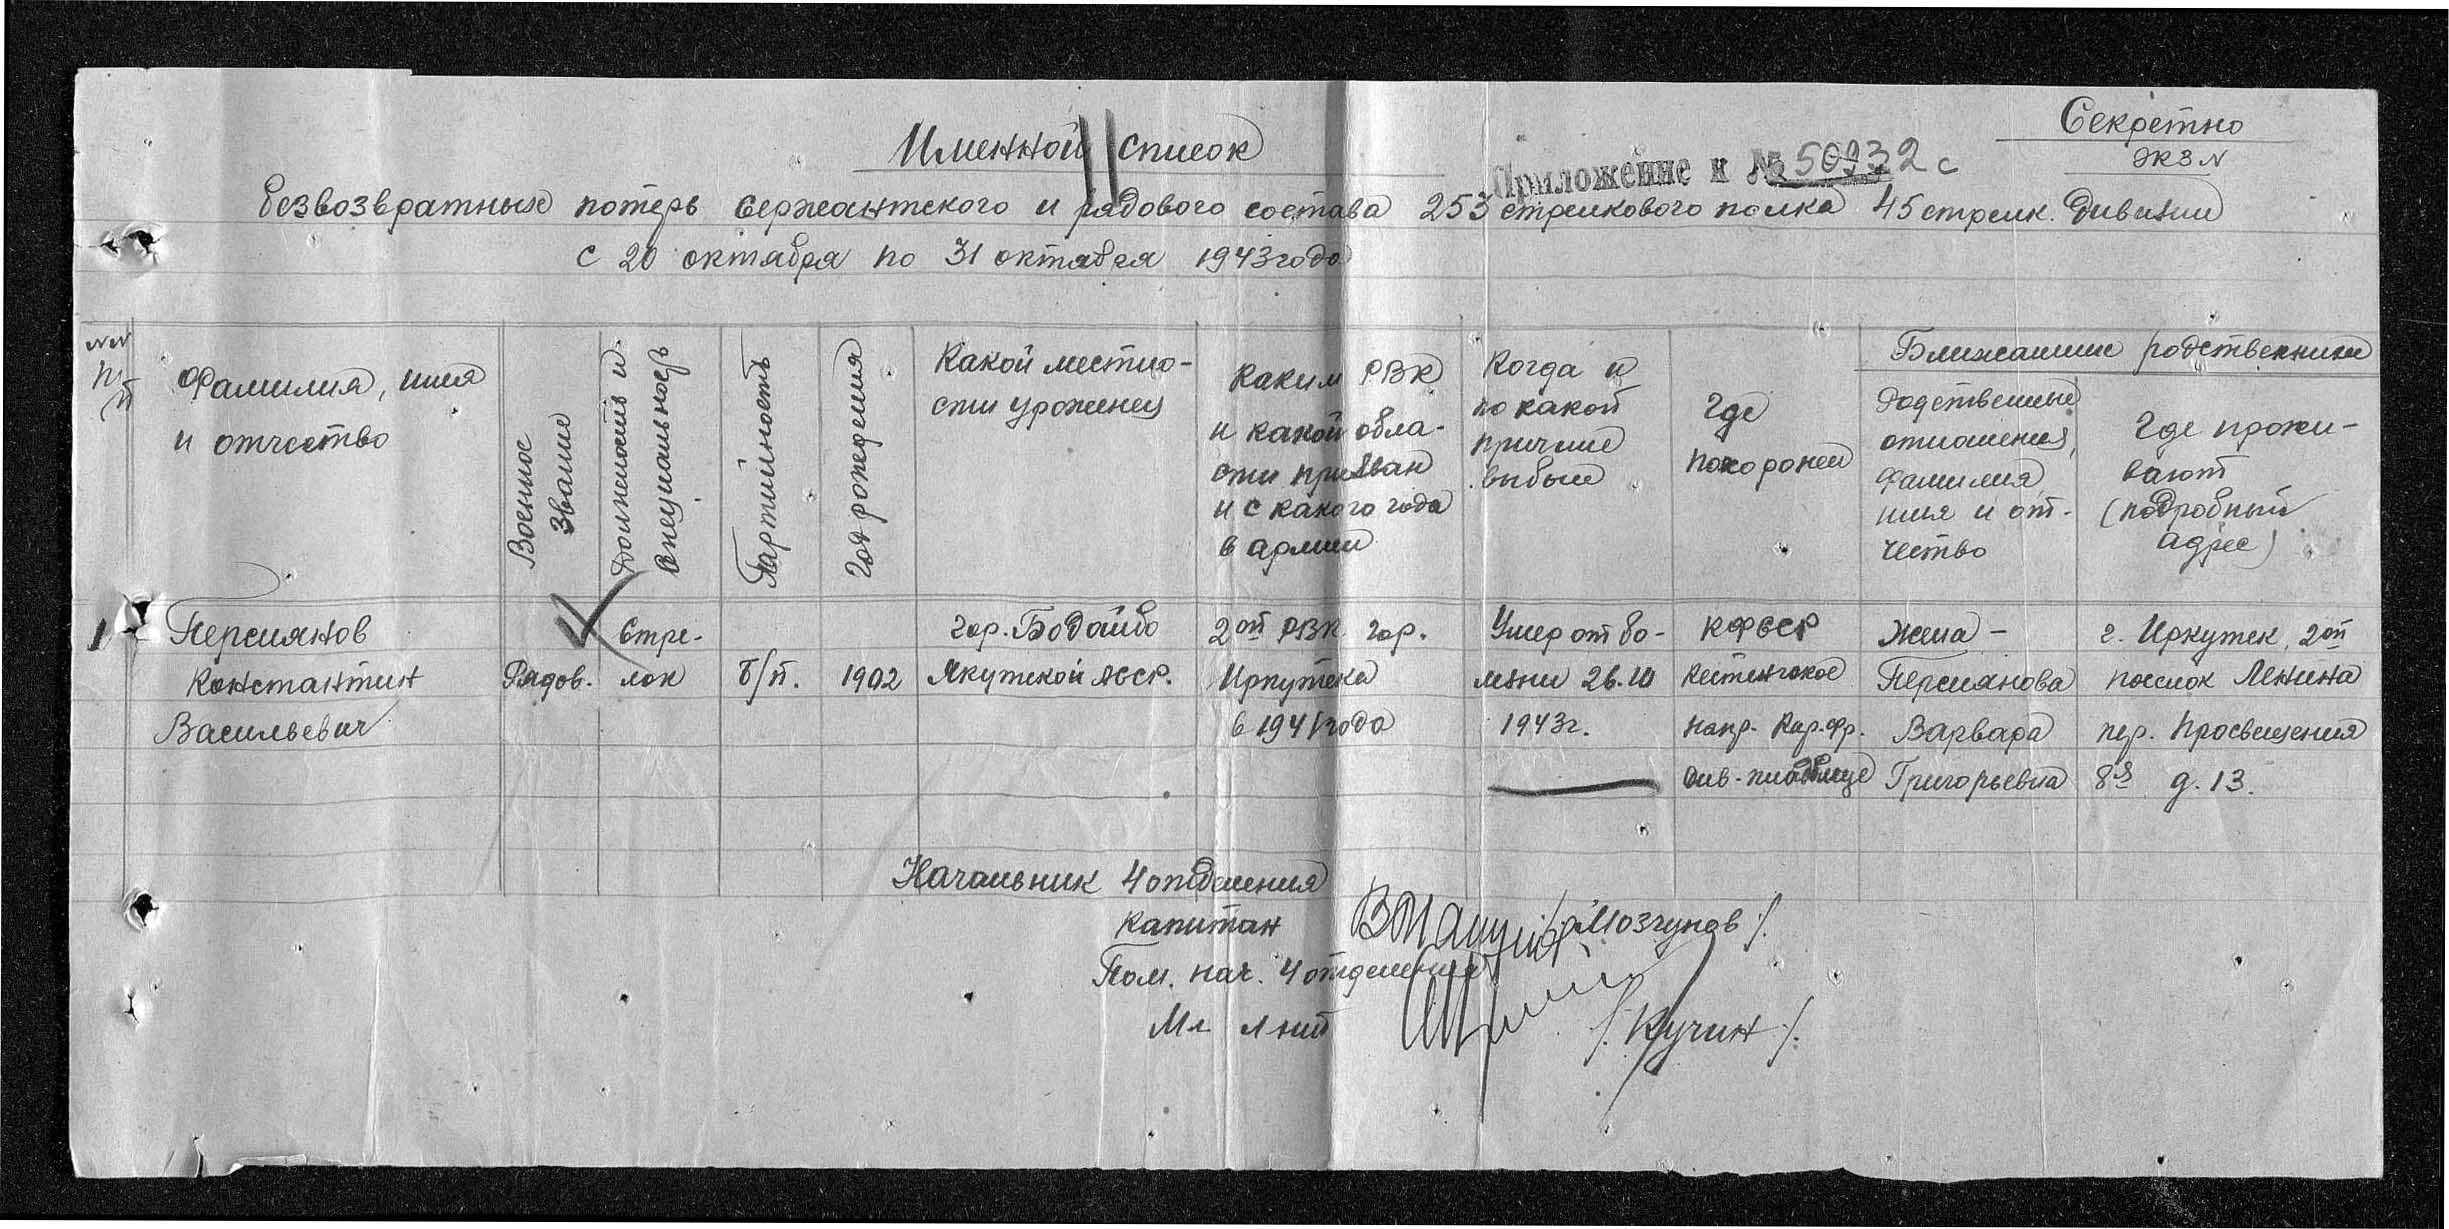 Секретно
экз N
Именной список
Приложение к № 50932 с
безвозвратных потерь сержантского и рядового состава 253 стрелкового полка 45 стрелк. дивизии
с 20 октября по 31 октября 1943 года
NN п/п
Фамилия, имя и отчество
Военное звание
Должность и специальность
Партийность
Год рождения
Какой местно-
сти уроженец
Каким РВК
и какой обла-
сти призван
и с какого года
в армии
Когда и
по какой
причине
выбыл
Где
похоронен
Ближайшие родственники
Родственные
отношения,
фамилия
имя и от-
чество
Где прожи-
вают
(подробный
адрес)
1 Персиянов Стре- гор. Бодайбо 2ой РВК гор. Умер от бо- КФССР Жена – г. Иркутск, 2ой
Константин Рядов. лок б/п. 1902 Якутской АССР. Иркутска лезни 26.10 Кестенгское Персиянова поселок Ленина
Васильевич в 1941 года 1943г. напр. Кар.Фр. Варвара пер. Просвещения
див. кладбище Григорьевна 8й д. 13.
Начальник 4 отделения
капитан /Мозгунов/.
Пом. нач. 4 отделения
Мл л-нт /Кучин/.